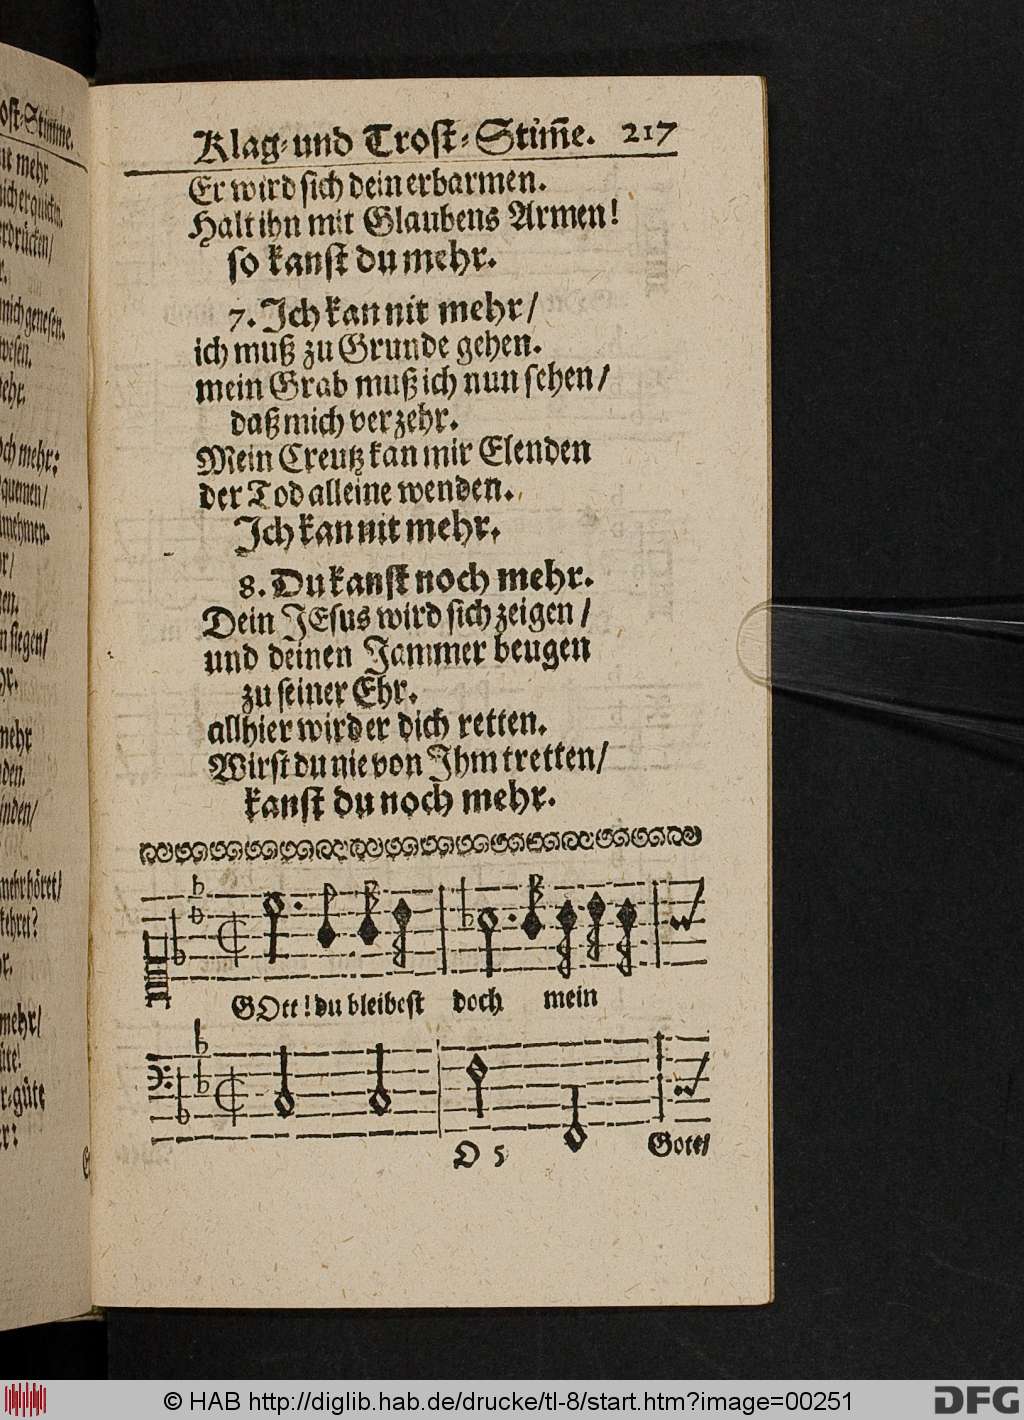 Klag- und Trost-Stim̃e. 217
Er wird sich dein erbarmen.
Halt ihn mit Glaubens Armen!
so kanst du mehr.
7. Ich kan nit mehr/
ich muß zu Grunde gehen.
mein Grab muß ich nun sehen/
daß mich verzehr.
Mein Creutz kan mir Elenden
der Tod alleine wenden.
Ich kan nit mehr.
8. Du kanst noch mehr.
Dein JEsus wird sich zeigen/
und deinen Jammer beugen
zu seiner Ehr.
allhier wird er dich retten.
Wirst du nie von Ihm tretten/
kanst du noch mehr.
GOtt! du bleibest doch mein
O 5 Gott/
© HAB http://diglib.hab.de/drucke/tl-8/start.htm?image=00251
DFG